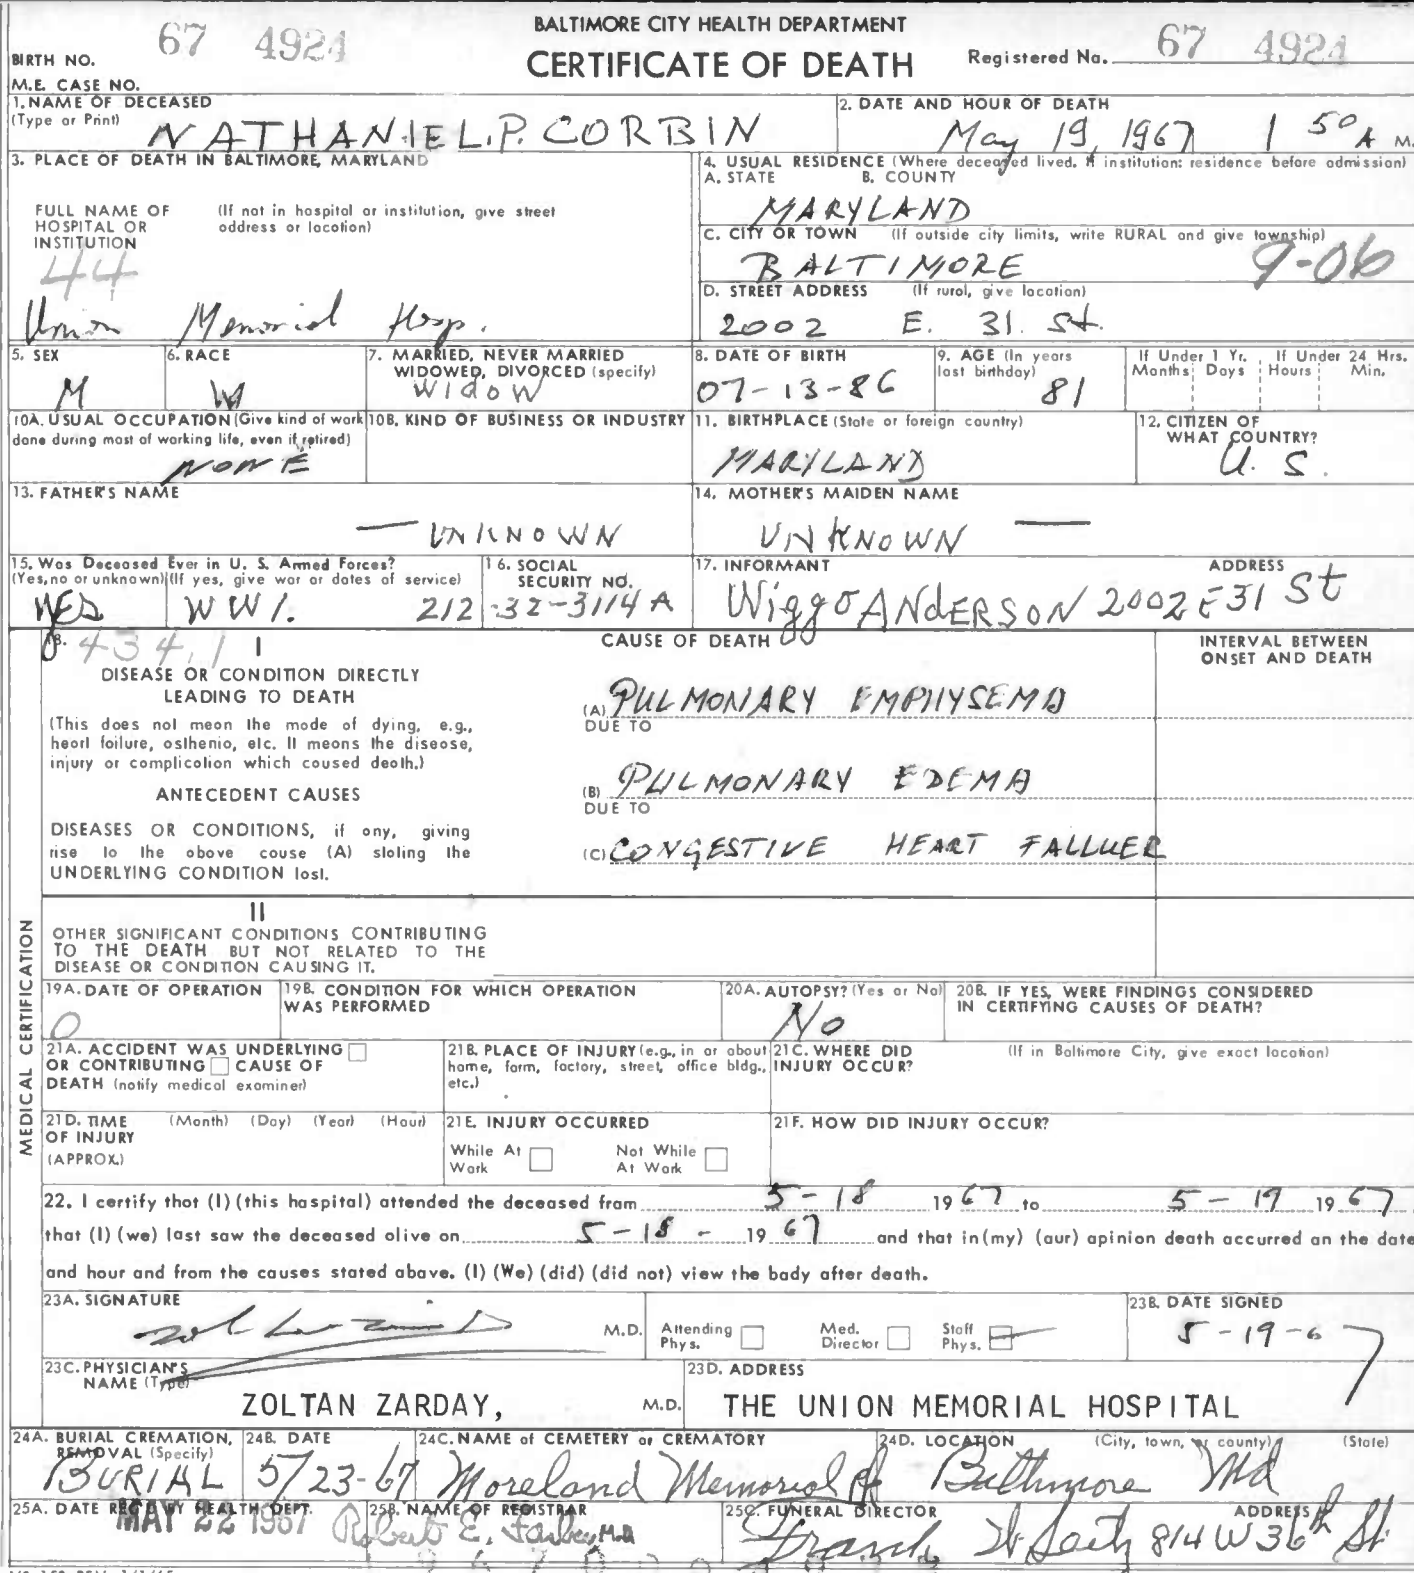 BALTIMORE CITY HEALTH DEPARTMENT
BIRTH NO. 67 4924 CERTIFICATE OF DEATH Registered No. 67 4924
M.E. CASE NO.
1. NAME OF DECEASED (Type or Print) NATHANIEL.P. CORBIN
2. DATE AND HOUR OF DEATH May 19, 1967 1 50 A M.
3. PLACE OF DEATH IN BALTIMORE, MARYLAND
FULL NAME OF HOSPITAL OR INSTITUTION (If not in hospital or institution, give street address or location)
44
Union Memorial Hosp.
4. USUAL RESIDENCE (Where deceased lived. If institution: residence before admission)
A. STATE B. COUNTY
MARYLAND
C. CITY OR TOWN (If outside city limits, write RURAL and give township)
BALTIMORE 9-06
D. STREET ADDRESS (If rural, give location)
2002 E. 31. St.
5. SEX M
6. RACE W
7. MARRIED, NEVER MARRIED WIDOWED, DIVORCED (specify) WIdOW
8. DATE OF BIRTH 07-13-86
9. AGE (In years last birthday) 81
If Under 1 Yr. Months Days
If Under 24 Hrs. Hours Min.
10A. USUAL OCCUPATION (Give kind of work done during most of working life, even if retired) NONE
10B. KIND OF BUSINESS OR INDUSTRY
11. BIRTHPLACE (State or foreign country) MARYLAND
12. CITIZEN OF WHAT COUNTRY? U. S.
13. FATHER'S NAME — UNKNOWN
14. MOTHER'S MAIDEN NAME UNKNOWN —
15. Was Deceased Ever in U. S. Armed Forces? (Yes, no or unknown) (If yes, give war or dates of service) YES WW1.
16. SOCIAL SECURITY NO. 212-32-3114 A
17. INFORMANT ADDRESS
Wiggo ANdERSON 2002 E 31 St
18. 434.1 I
DISEASE OR CONDITION DIRECTLY LEADING TO DEATH
(This does not mean the mode of dying, e.g., heart failure, asthenia, etc. It means the disease, injury or complication which caused death.)
ANTECEDENT CAUSES
DISEASES OR CONDITIONS, if any, giving rise to the above cause (A) stating the UNDERLYING CONDITION last.
CAUSE OF DEATH
(A) PULMONARY EMPHYSEMA
DUE TO
(B) PULMONARY EDEMA
DUE TO
(C) CONGESTIVE HEART FALLUER
INTERVAL BETWEEN ONSET AND DEATH
MEDICAL CERTIFICATION
II
OTHER SIGNIFICANT CONDITIONS CONTRIBUTING TO THE DEATH BUT NOT RELATED TO THE DISEASE OR CONDITION CAUSING IT.
19A. DATE OF OPERATION 0
19B. CONDITION FOR WHICH OPERATION WAS PERFORMED
20A. AUTOPSY? (Yes or No) No
20B. IF YES, WERE FINDINGS CONSIDERED IN CERTIFYING CAUSES OF DEATH?
21A. ACCIDENT WAS UNDERLYING OR CONTRIBUTING CAUSE OF DEATH (notify medical examiner)
21B. PLACE OF INJURY (e.g., in or about home, farm, factory, street, office bldg., etc.)
21C. WHERE DID INJURY OCCUR? (If in Baltimore City, give exact location)
21D. TIME OF INJURY (APPROX.) (Month) (Day) (Year) (Hour)
21E. INJURY OCCURRED While At Work Not While At Work
21F. HOW DID INJURY OCCUR?
22. I certify that (I) (this hospital) attended the deceased from 5-18 1967 to 5-19 1967
that (I) (we) last saw the deceased alive on 5-18- 1967 and that in (my) (our) opinion death occurred on the date
and hour and from the causes stated above. (I) (We) (did) (did not) view the body after death.
23A. SIGNATURE M.D. Attending Phys. Med. Director Staff Phys.
23B. DATE SIGNED 5-19-67
23C. PHYSICIAN'S NAME (Type) ZOLTAN ZARDAY, M.D.
23D. ADDRESS THE UNION MEMORIAL HOSPITAL
24A. BURIAL CREMATION, REMOVAL (Specify) BURIAL
24B. DATE 5/23-67
24C. NAME of CEMETERY or CREMATORY Moreland Memorial
24D. LOCATION (City, town, or county) (State) Balthmore Md
25A. DATE REC'D BY HEALTH DEPT. MAY 22 1967
25B. NAME OF REGISTRAR Robert E. Farber, M.D.
25C. FUNERAL DIRECTOR ADDRESS
Frank W Seitz 814 W 36th St